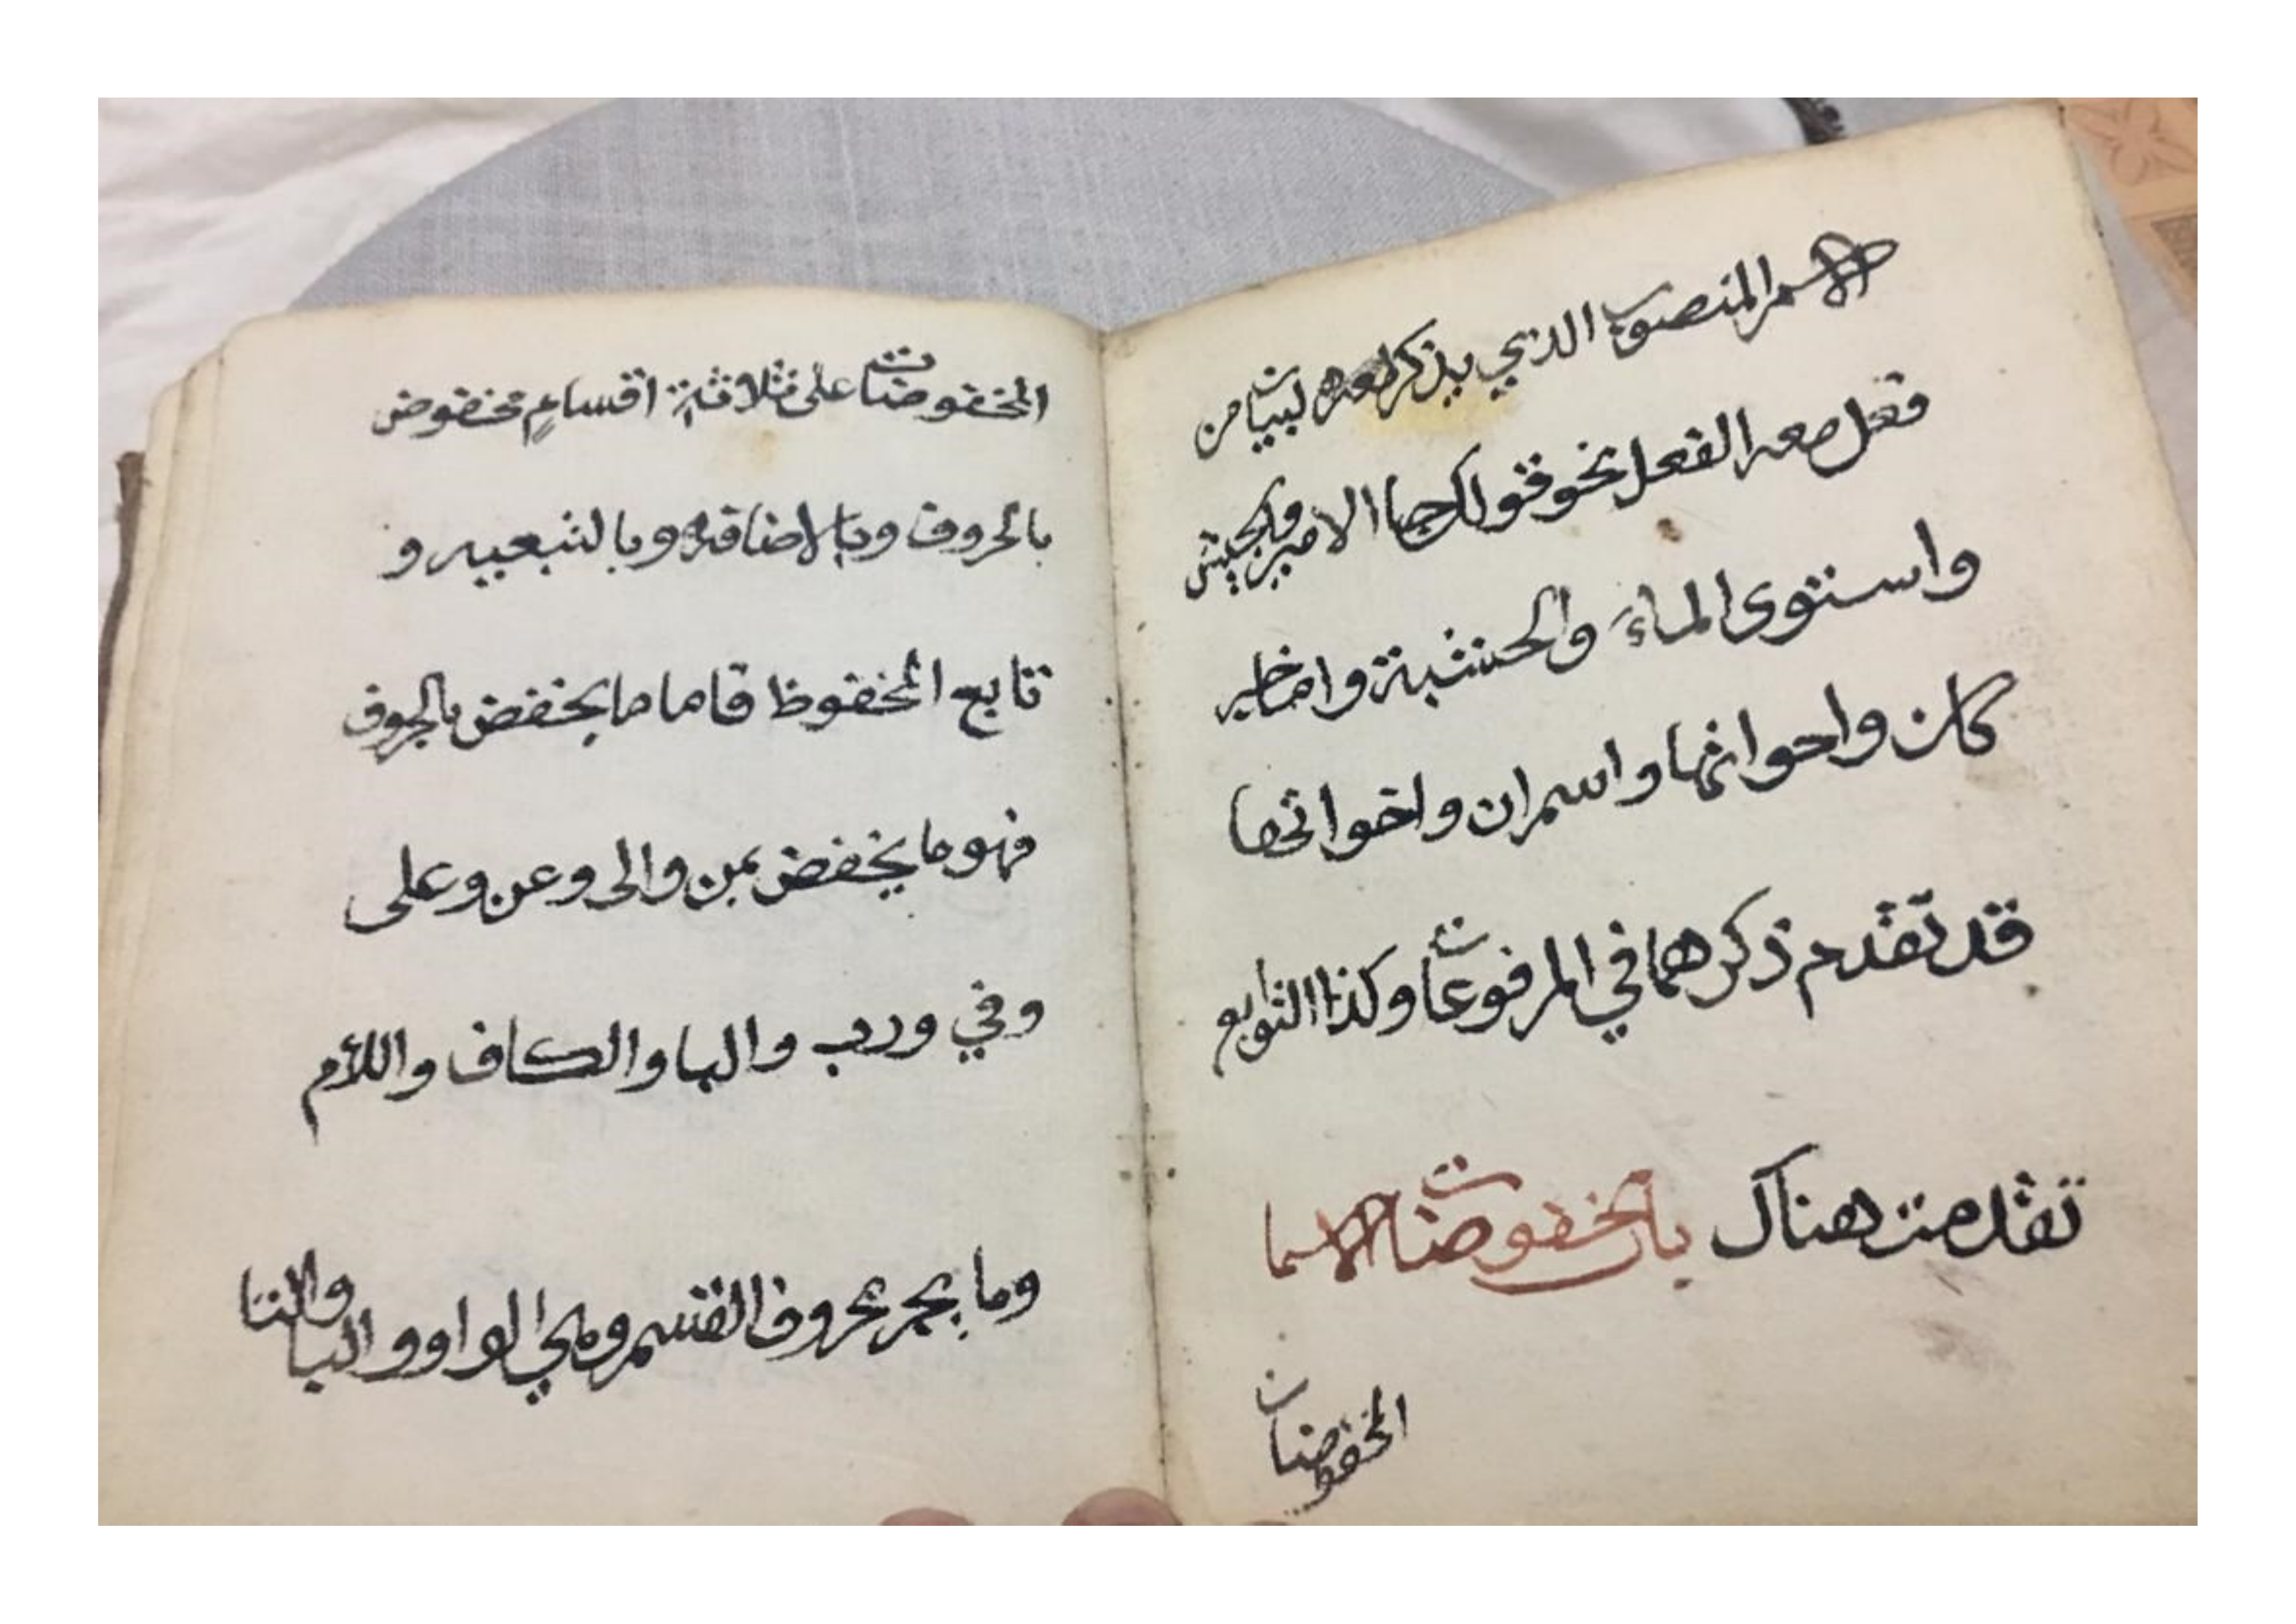 الاسم المنصوب الذي يذكر بعده لبيات من
فعل معه الفعل نحو قولك جا الامير والجيش
واستوى الماءَ والحشبة واما خبر
كان واحواتها واسم ان واخواتها
قد تقدم ذكرهما في المرفوعات وكذا التوابع
تقدمت هناك باب مخفوضات الاسما
المخفوضات
المخفوضات على ثلاثة اقسامٍ مخفوض
بالحروف وبالاضافه وبالتبعيه و
تابع المخفوظ فاما ما يخفض بالحروف
فهو ما يخفض بمن والى وعن وعلى
وفي ورب والبا والكاف واللام
وما يجر بحروف القسم وهي الواو والبا والتا